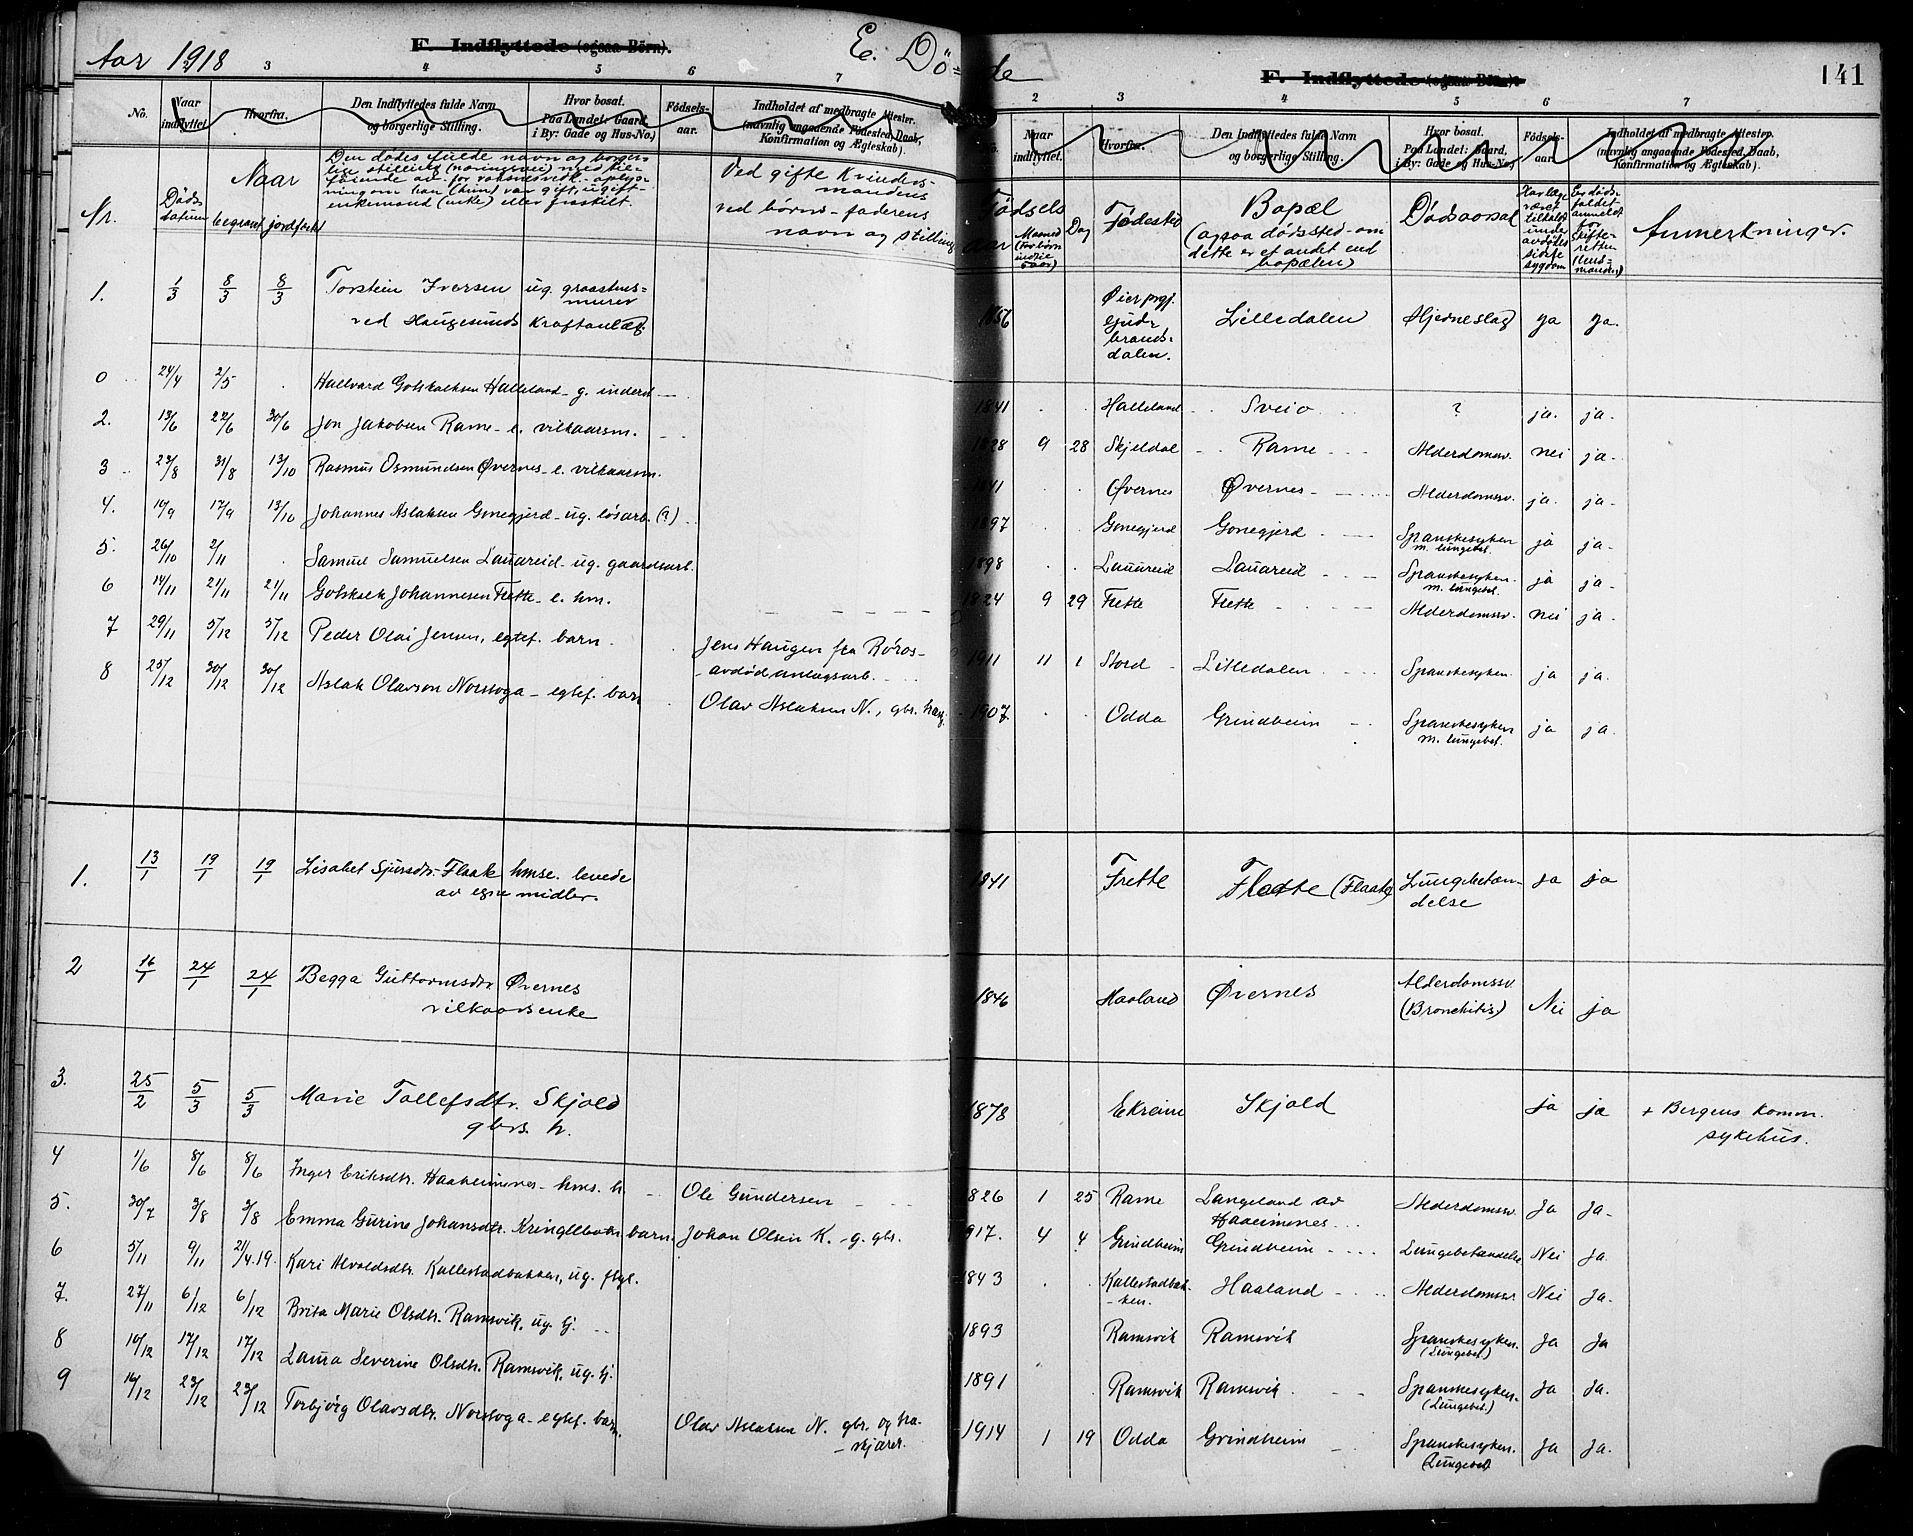 Aar 1918
F. Indflyttede (ogsaa Börn).
E. Dö=de
F. Indflyttede (ogsaa Börn).
141
3 4 5 6 7
2 3 4 5 6 7
No. Naar indflyttet. Hvorfra. Den Indflyttedes fulde Navn og borgerlige Stilling. Hvor bosat. Paa Landet: Gaard, i By: Gade og Hus-No.) Fødsels-aar. Indholdet af medbragte Attester. (navnlig angaaende Fødested, Daab, Konfirmation og Ægteskab).
Naar indflyttet. Hvorfra. Den Indflyttedes fulde Navn og borgerlige Stilling. Hvor bosat. Paa Landet: Gaard, i By: Gade og Hus-No.) Fødsels-aar. Indholdet af medbragte Attester. (navnlig angaaende Fødested, Daab, Konfirmation og Ægteskab).
Nr. Døds datum Naar begravet jordfæstet
Den dødes fulde navn og borger-
lige stilling (næringsvei) med til-
føiende av for voksnes vedk. oplys-
ning om han (hun) var gift, ugift
enkemand (enke) eller fraskilt.
Ved gifte kvinders-
mandens
ved børns - faderens
navn og stilling
Fødsels aar Maaned (For børn under 5 aar) Dag Fødested
Bopæl
(ogsaa dødssted om
dette er et andet end
bopælen)
Dødsaarsak
Har læge været tilkaldt under avdødes sidste sygdom
Er døds-faldet anmeldt for skifte-retten (lens-manden)
Anmerkninger.
1. 1/3 8/3 8/3 Torstein Iversen ug. graastens=
murer
ved Haugesunds Kraftanlæg
1856 Øier prgj. Gud-brands-dalen. Lilledalen Hjerneslag ja ja.
0 24/4 2/5 . Hallvard Gotskalksen Halleland - g. inderst
1841 . . Halleland - Sveio ? ja. ja.
2. 13/6 22/6 30/6 Jon Jakobsen Rame - e. vilkaarsm.
1828 9 28 Skjeldal - Rame - Alderdomssv. nei ja.
3 23/8 31/8 13/10 Rasmus Osmundsen Øvernes - e. vilkaarsm.
1841 . . Øvernes Øvernes - Alderdomssv. ja. ja.
4. 10/9 17/9 13/10 Johannes Aslaksen Gonegjerd - ug. løsarb. (?)
1897 . . Gonegjerd Gonegjerd Spanskesyken m. lungebet. ja ja.
5. 26/10 2/11 . Samuel Samuelsen Lauareid - ug. gaardsarb.
1898 . . Lauareid Lauareid Spanskesyken. m. lungebet. ja ja.
6 14/11 21/11 21/11 Gotskalk Johannesen Frette - e. hm.
1824 9 29 Frette Frette Alderdomssv. nei ja.
7 29/11 5/12 5/12 Peder Olai Jensen, egtef. barn. Jens Haugen fra Røros -
avdød anlægsarb.
1911 11 1 Stord - Litledalen Spanskesyken. ja ja.
8 25/12 30/12 30/12 Aslak Olavson Norstoga - egtef. barn Olav Aslaksen N., gbr.
1907 . . Odda Grindheim Spanskesyken m. lungebet. ja ja.
1. 13/1 19/1 19/1 Lisabet Sjursdtr Flaate hmse. levede
av egne midler.
1841 Frette Flotte (Flaate) Lungebetæn-
delse ja ja
2 16/1 24/1 24/1 Begga Guttormsdtr Øvernes
vilkaarsenke
1846 Haaland Øvernes Alderdomssv
(Bronchitis) Nei ja
3. 25/2 5/3 5/3 Marie Tollefsdtr. Skjold
gbrs. h.
1878 Ekreim Skjold ja ja + Bergens komm.
sykehus.
4 1/6 8/6 8/6 Inger Eriksdtr. Haaheimsnes - hms. h. Ole Gundersen
1826 1 25 Rame Langeland av
Haaeimsnes Alderdomssv. Ja Ja.
5. 30/7 3/8 3/8 Emma Gurine Johansdtr. Kringlebotn barn. Johan Olsen K. - g. gbr.
1917. 4 4 Grindheim Grindheim Lungebetændelse Nei Ja
6 5/11 9/11 21/4.19. Kari Alvoldsdtr. Kallestadbakken, ug. flgl.
1843 . . Kallestadbak-
ken. Haaland Alderdomssv. Nei Ja.
7. 27/11 6/12 6/12 Brita Marie Olsdtr. Ramsvik, ug. tj.
1893 Ramsvik Ramsvik Spanskesyken. (Lungebet.) Ja Ja
8 10/12 17/12 17/12 Laura Severine Olsdtr. Ramsvik, ug. tj.
1891 Ramsvik Ramsvik Spanskesyken. (Lungebet.) Ja Ja.
9 16/12 23/12 23/12 Torbjørg Olavsdtr. Norstoga - egtef. barn. Olav Aslaksen N. gbr. og fra-
skjærer.
1914 1 19 Odda Grindheim Spanskesyken. (Lungebet) Ja Ja.